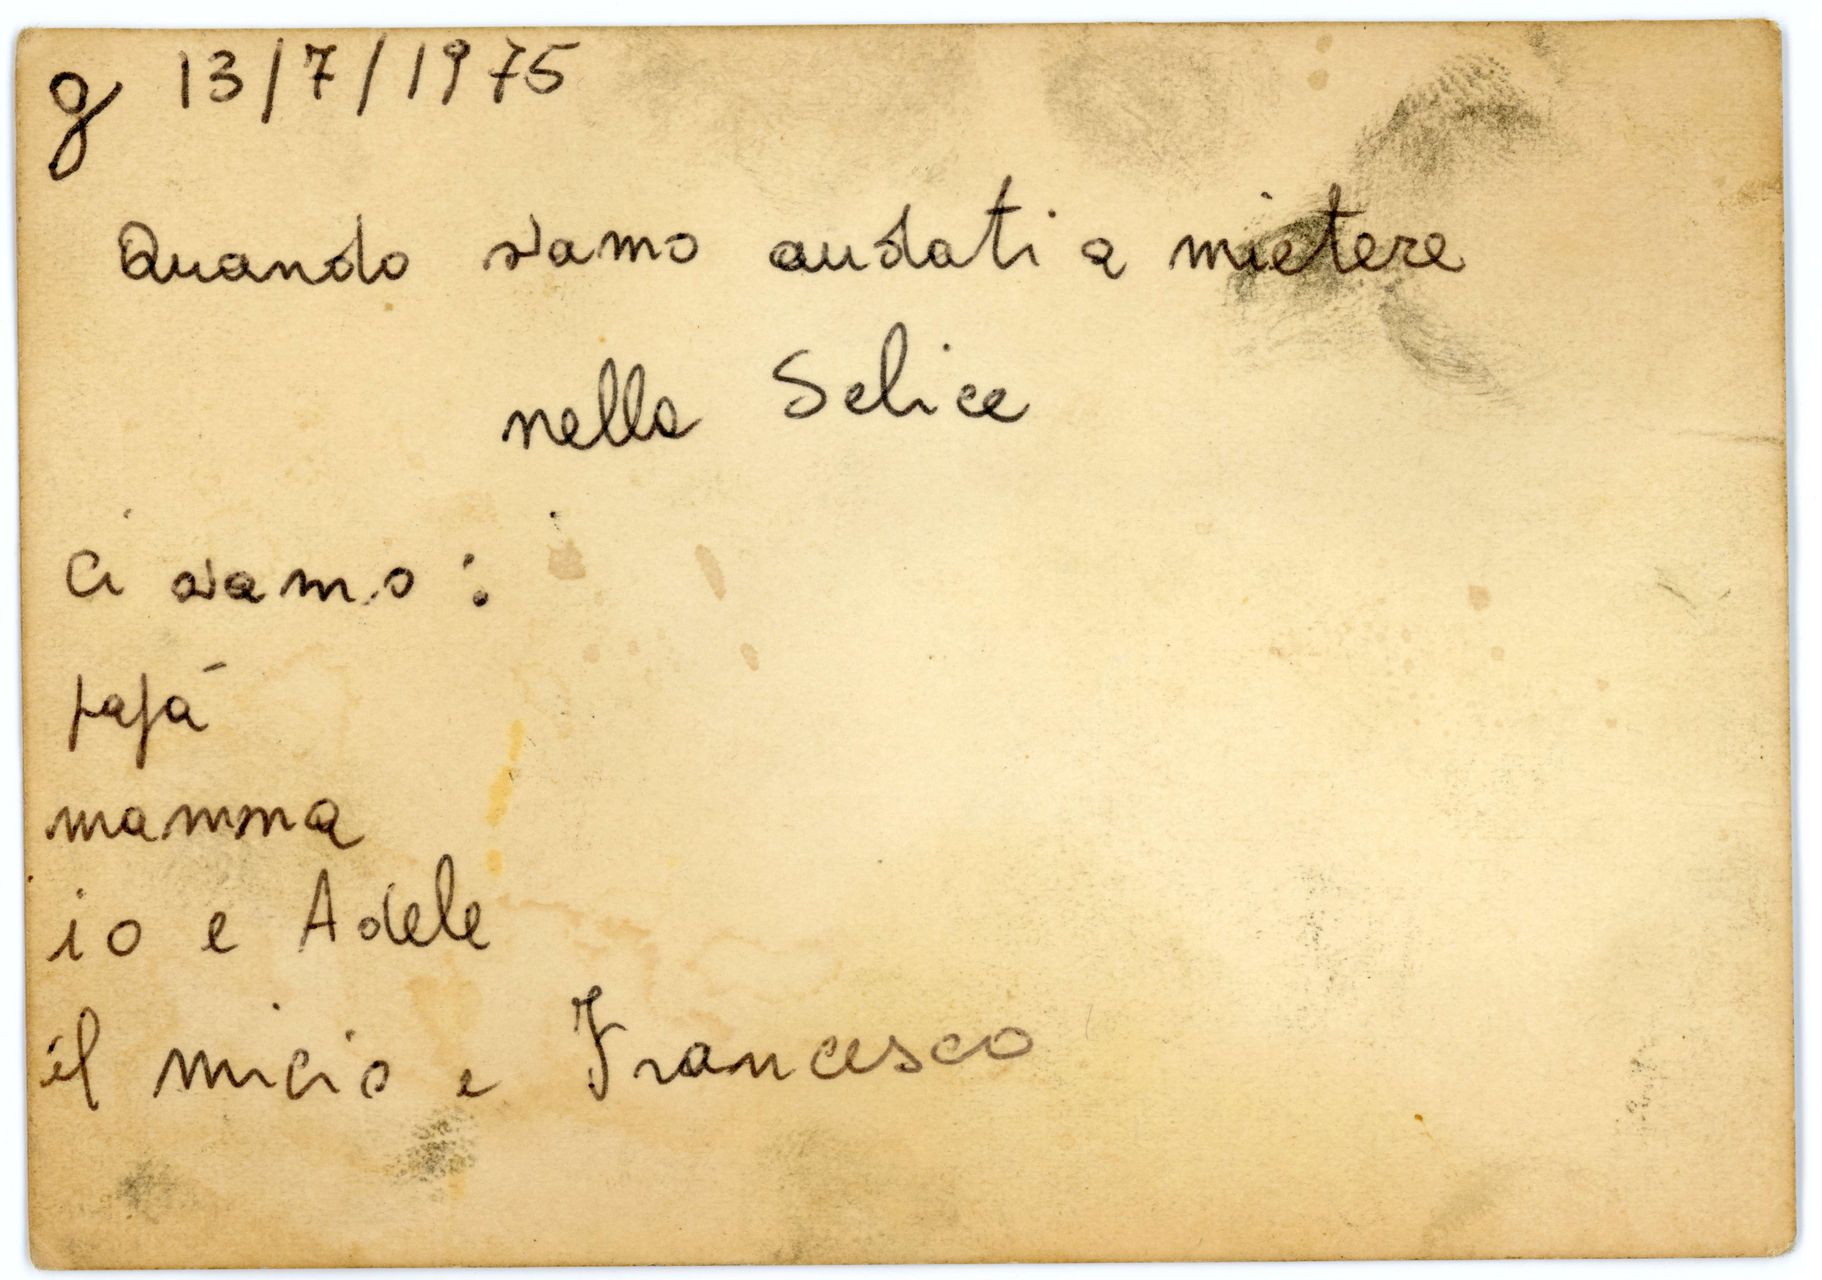 g 13/7/1975
Quando siamo andati a mietere
nella Selice
Ci siamo:
papá
mamma
io e Adele
il micio e Francesco